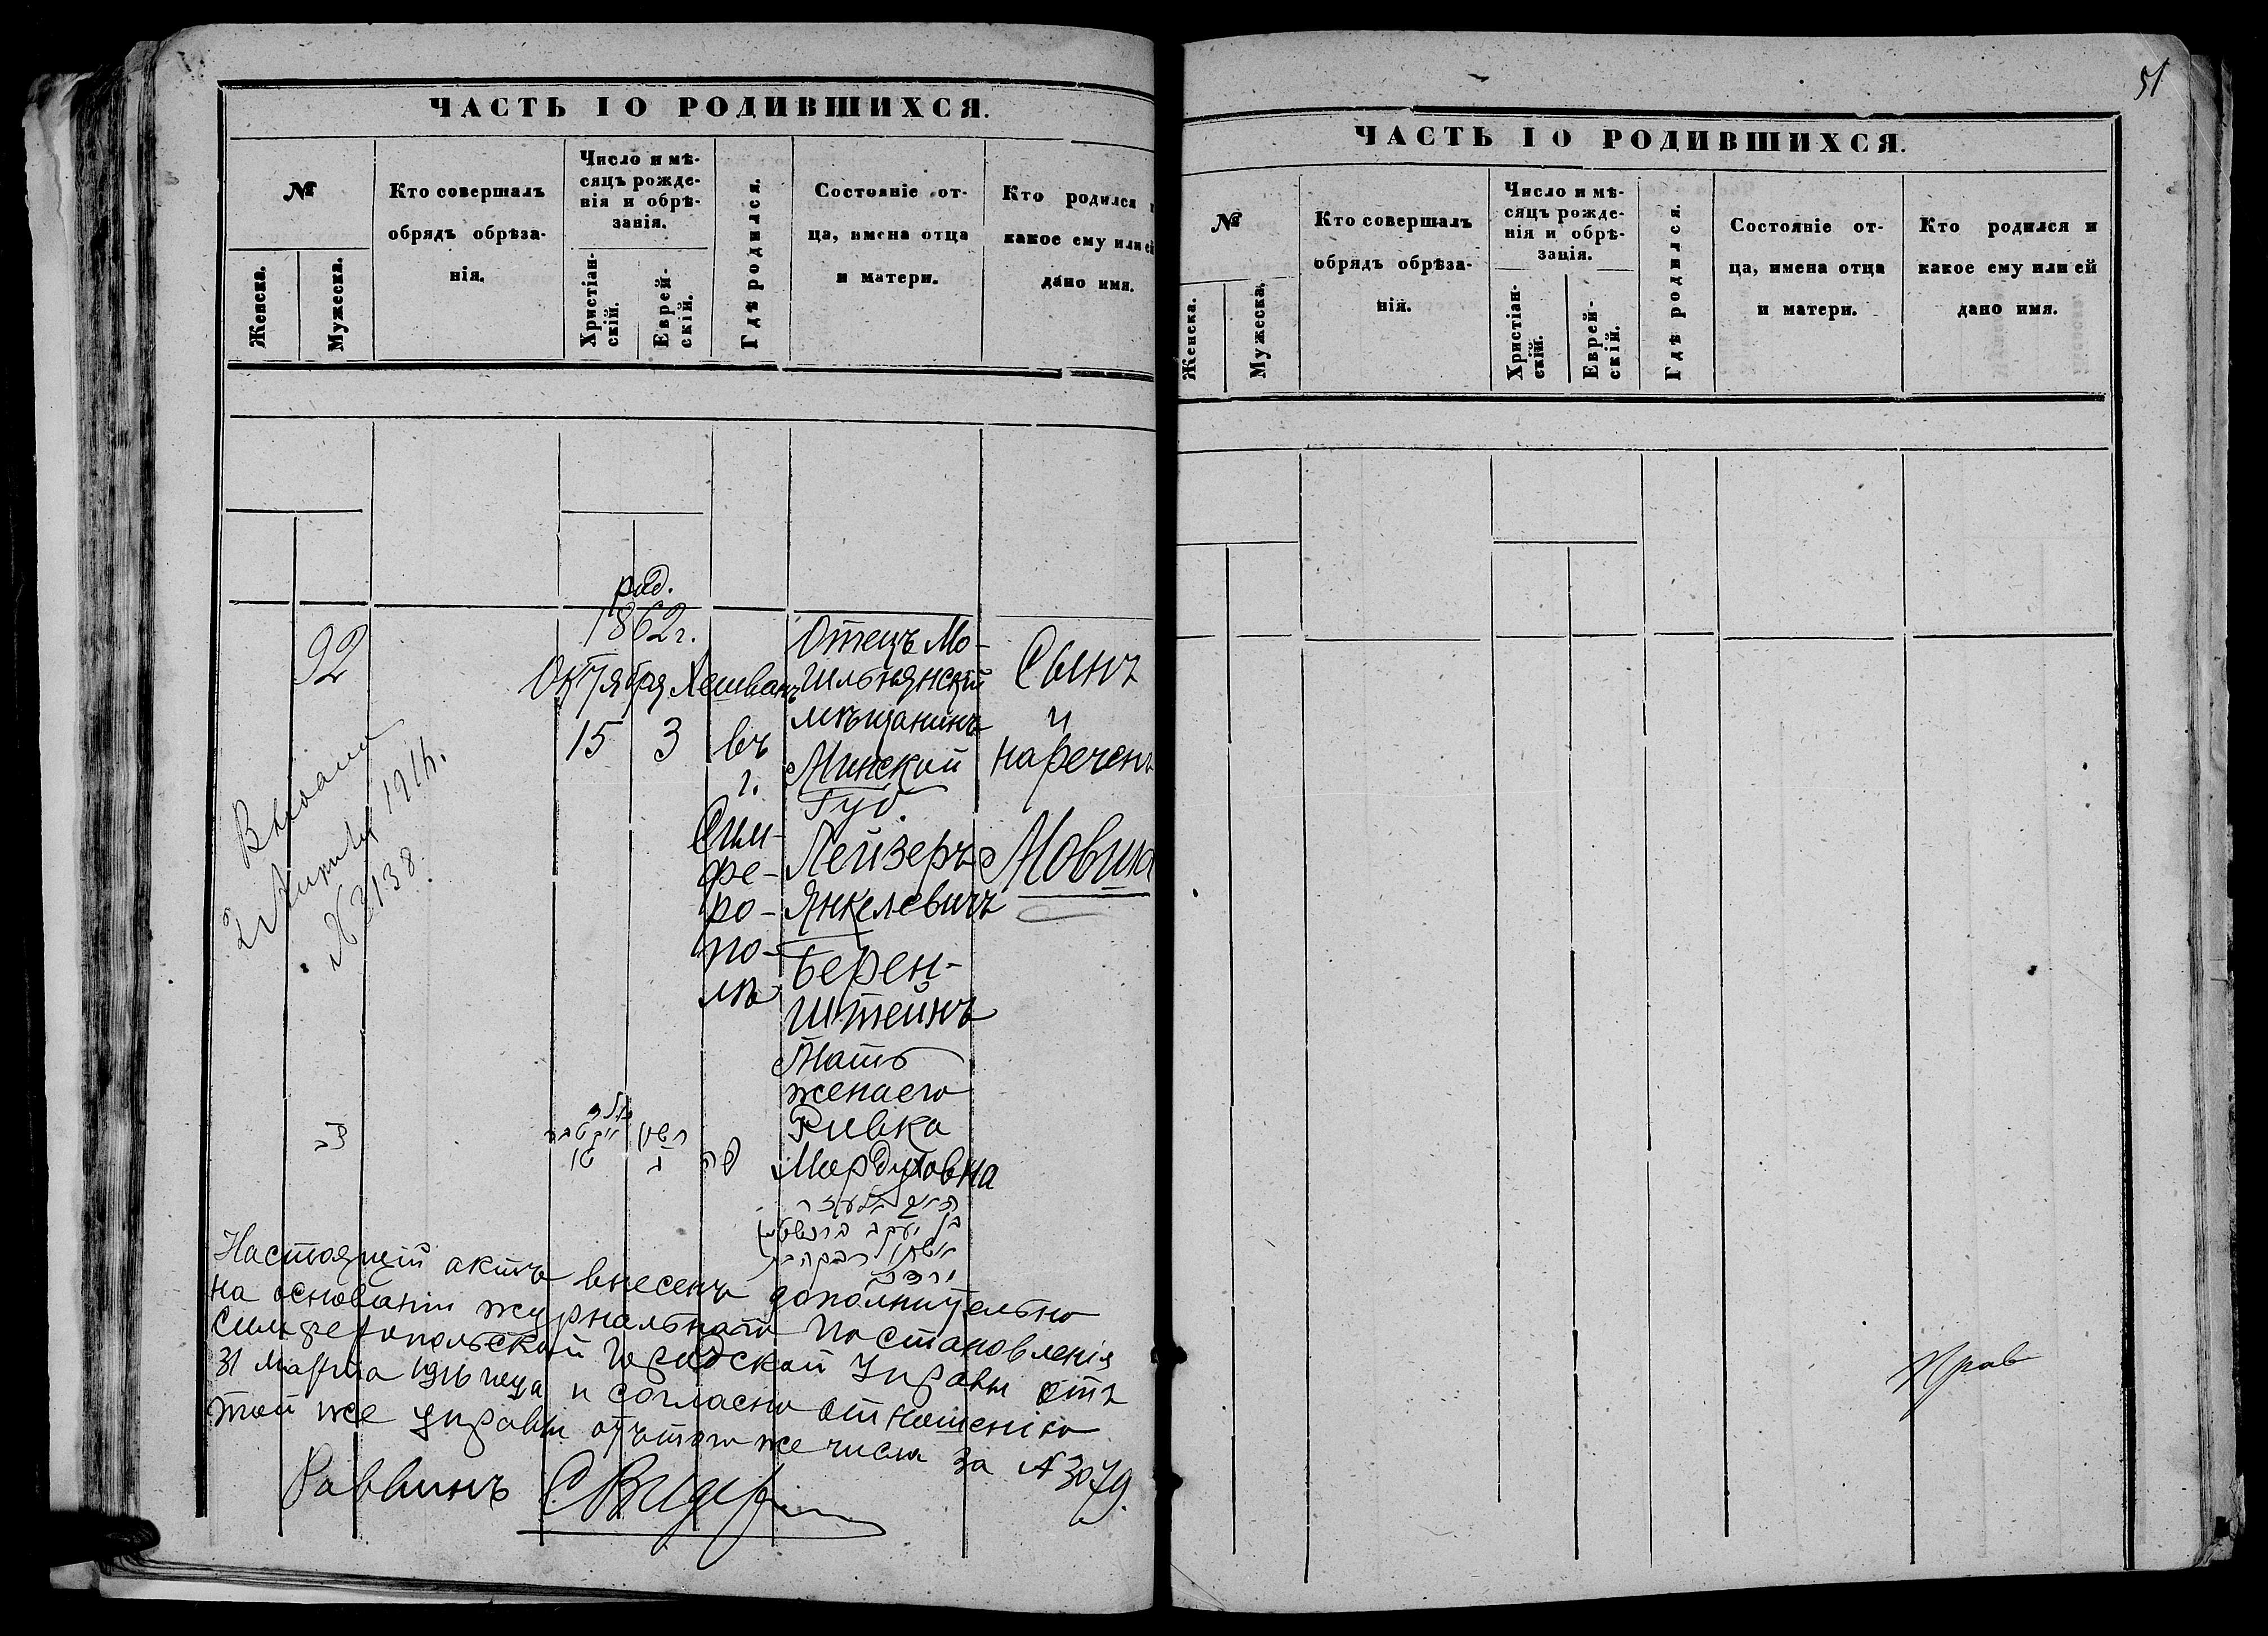 ЧАСТЬ I О РОДИВШИХСЯ.
№
Женска.
Мужеска.
Кто совершалъ
обрядъ обрѣза-
нія.
Число и мѣ-
сяцъ рожде-
нія и обрѣ-
занія.
Христіан-
скій.
Еврей-
скій.
Гдѣ родился.
Состояніе от-
ца, имена отца
и матери.
Кто родился
какое ему или ей
дано имя.
92
род.
1862 г.
Октября Хешванъ
15
3
въ
г.
Сим-
фе-
ро-
по-
лѣ
Отецъ Мо-
мѣщанинъ
Минской
Губ.
Лейзеръ
Янкелевичъ
Берен-
штейнъ
Мать
жена его
Ривка
Мордуховна
Сынъ
и
нареченъ
Мовша
Выдана
2 Апрѣля 1916.
№ 3138.
צב
טו
ג
פה
בן יעקב
רבקה בת
Настоящій актъ внесенъ дополнительно
на основаніи журнальнаго постановленія
Симферопольской Городской Управы отъ
31 Марта 1916 года и согласно отношенію
той же управы отъ того же числа за № 3079.
Раввинъ
51
ЧАСТЬ I О РОДИВШИХСЯ.
№
Женска.
Мужеска.
Кто совершалъ
обрядъ обрѣза-
нія.
Число и мѣ-
сяцъ рожде-
нія и обрѣ-
занія.
Христіан-
скій.
Еврей-
скій.
Гдѣ родился.
Состояніе от-
ца, имена отца
и матери.
Кто родился и
какое ему или ей
дано имя.